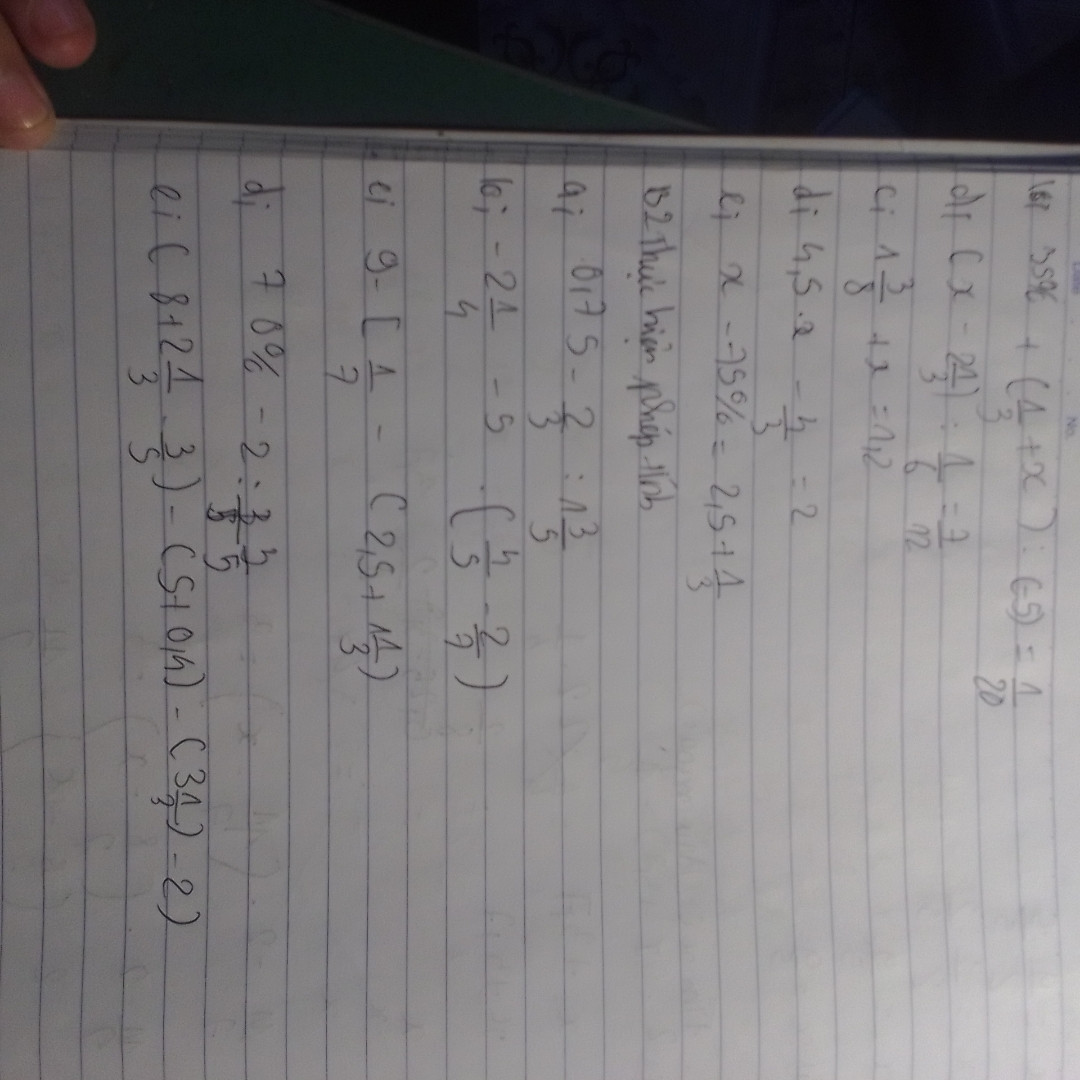 No.
b) 35% + (1/3 + x) : (-5) = 1/20
d) (x - 2 1/3) : 1/6 = 7/12
c) 1 3/8 + x = 1,2
d) 4,5 . x - 4/3 = 2
e) x - 75% = 2,5 + 1/3
B2 Thực hiện phép tính
a) 0,75 - 2/3 : 1 3/5
b) - 2 1/4 - 5 . (4/5 - 2/7)
c) 9 - [1/7 - (2,5 + 1 1/3)
d) 70% - 2 : 4/5
e) (8 + 2 1/3 - 3/5) - (5 + 0,4) - (3 1/3) - 2)